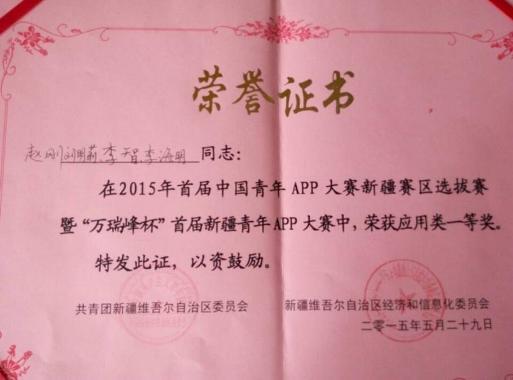 荣誉证书
赵刚 刘明莉 李智 李海明 同志:
在2015年首届中国青年APP大赛新疆赛区选拔赛
暨“万瑞峰杯”首届新疆青年APP大赛中,荣获应用类一等奖。
特发此证,以资鼓励。
共青团新疆维吾尔自治区委员会 新疆维吾尔自治区经济和信息化委员会
二〇一五年五月二十九日